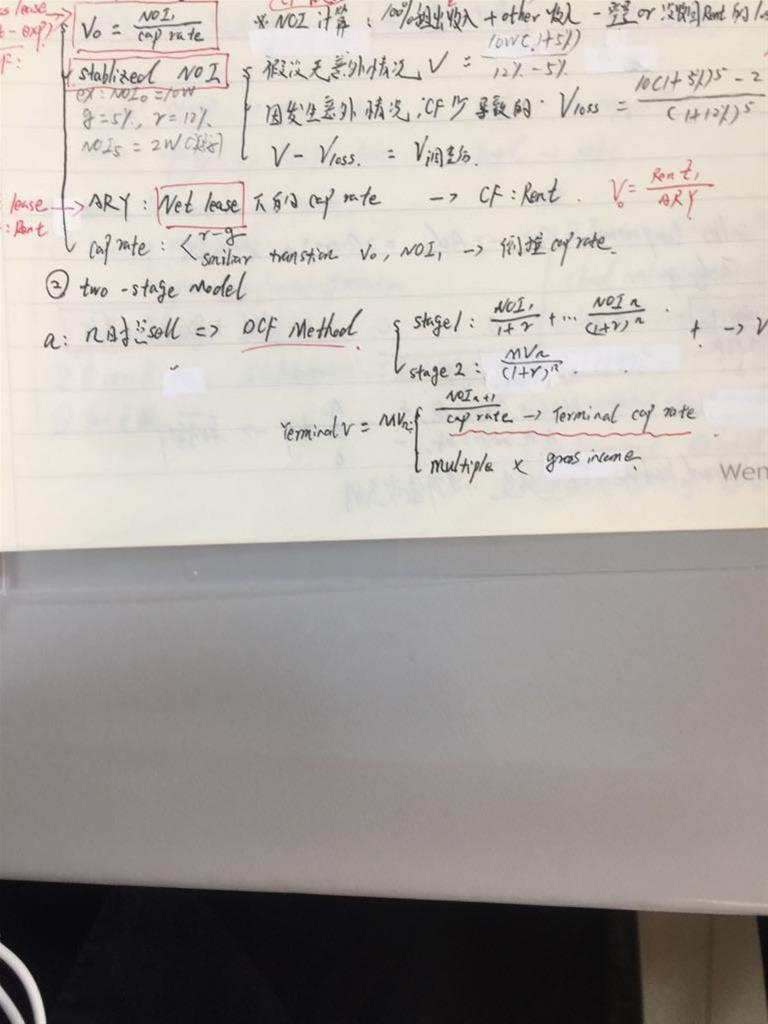 s lease
V₀ = NOI₁ / cap rate ※ NOI 计算: 100%租出收入 + other 收入 - 空置 or 没收回Rent 的 los
t - exp)
F:
stablized NOI { 假设无意外情况, V = 10W(1+5%) / 12% - 5%
ex: NOI₀ = 10W
g = 5%, r = 12%
因发生意外情况, CF少导致的 V loss = 10(1+5%)⁵ - 2 / (1+12%)⁵
NOI₅ = 2W
V - V loss = V调整后
lease → ARY: Net lease 下的 cap rate → CF: Rent. V₀ = Rent₁ / ARY
: Rent
cap rate: < r-g
similar transtion V₀, NOI₁ → 倒推 cap rate.
② two-stage Model
a: n时点sell => DCF Method { stage 1: NOI₁ / 1+r + ... NOIn / (1+r)ⁿ + → V
stage 2: MVn / (1+r)ⁿ.
Terminal V = MVn { NOIn+1 / cap rate → Terminal cap rate
multiple × gross income.
Wen